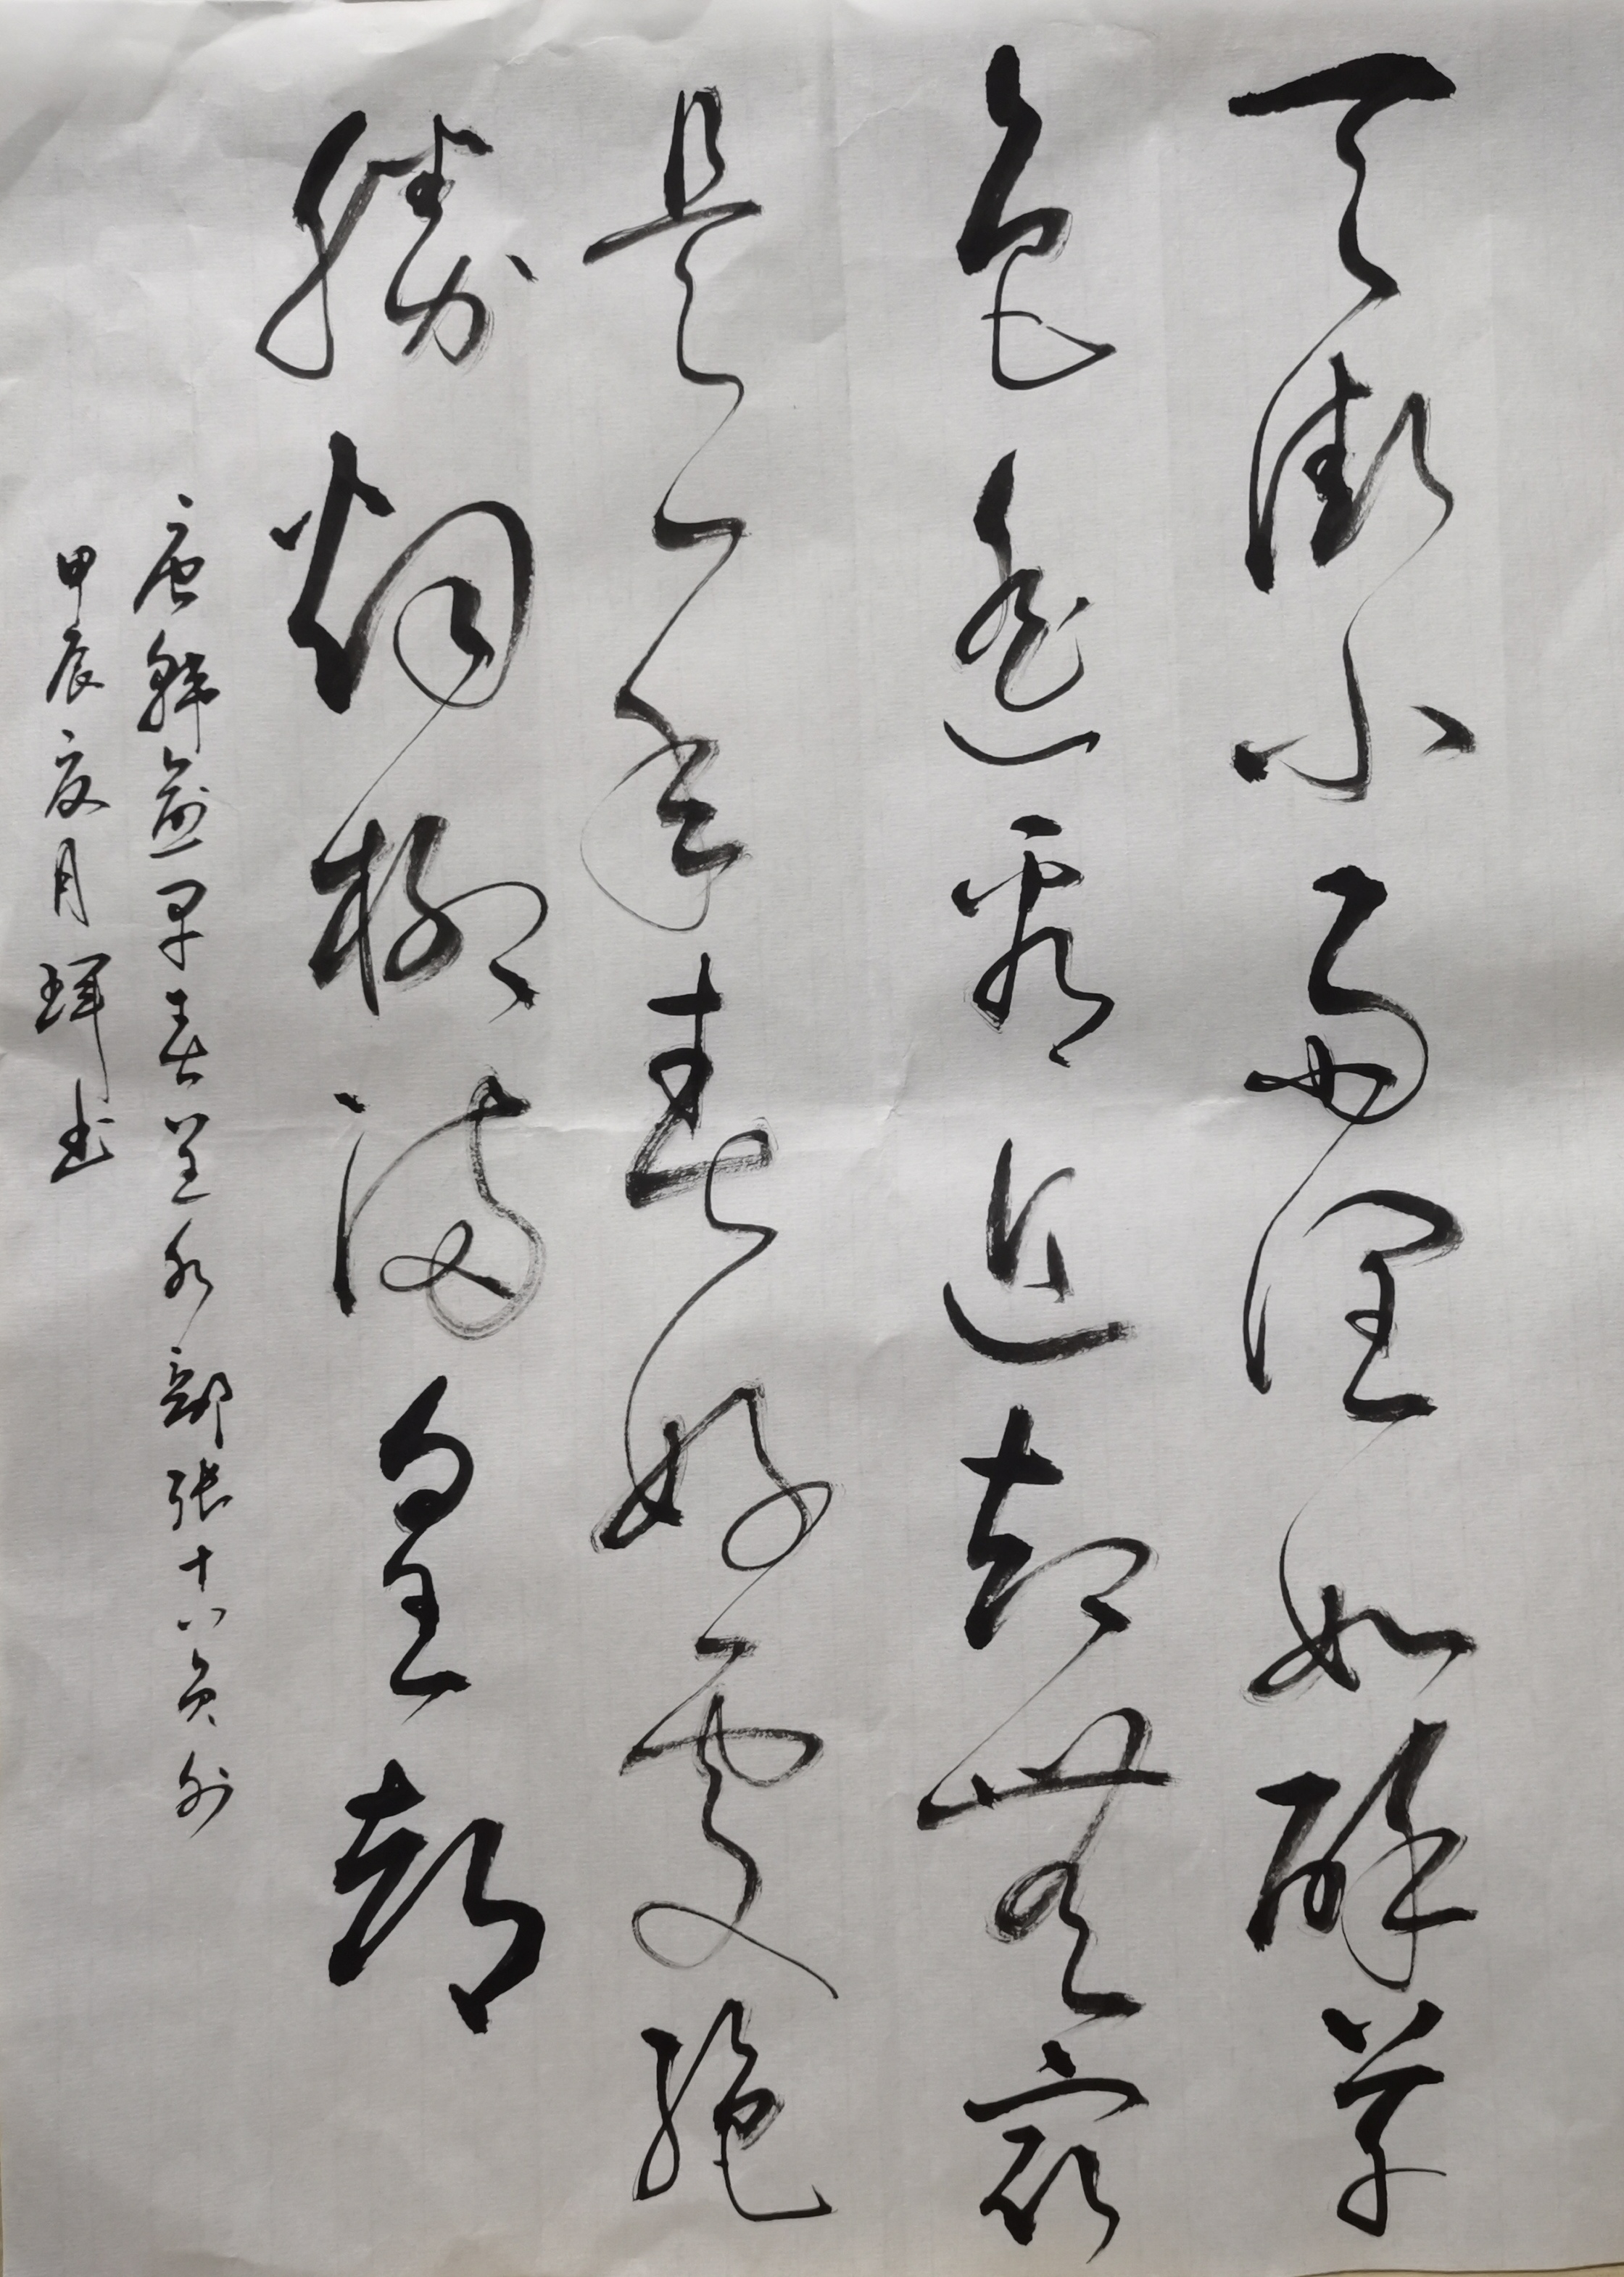 天街小雨润如酥草
色遥看近却無最
是一年春好處絶
勝烟柳满皇都
唐韩愈早春呈水部张十八员外
甲辰夏月 珲书